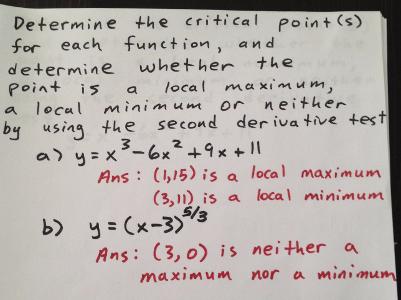 Determine the critical point(s)
for each function, and
determine whether the
point is a local maximum,
a local minimum or neither
by using the second derivative test
a) y = x³ - 6x² + 9x + 11
Ans: (1,15) is a local maximum
(3,11) is a local minimum
b) y = (x-3)^5/3
Ans: (3,0) is neither a
maximum nor a minimum